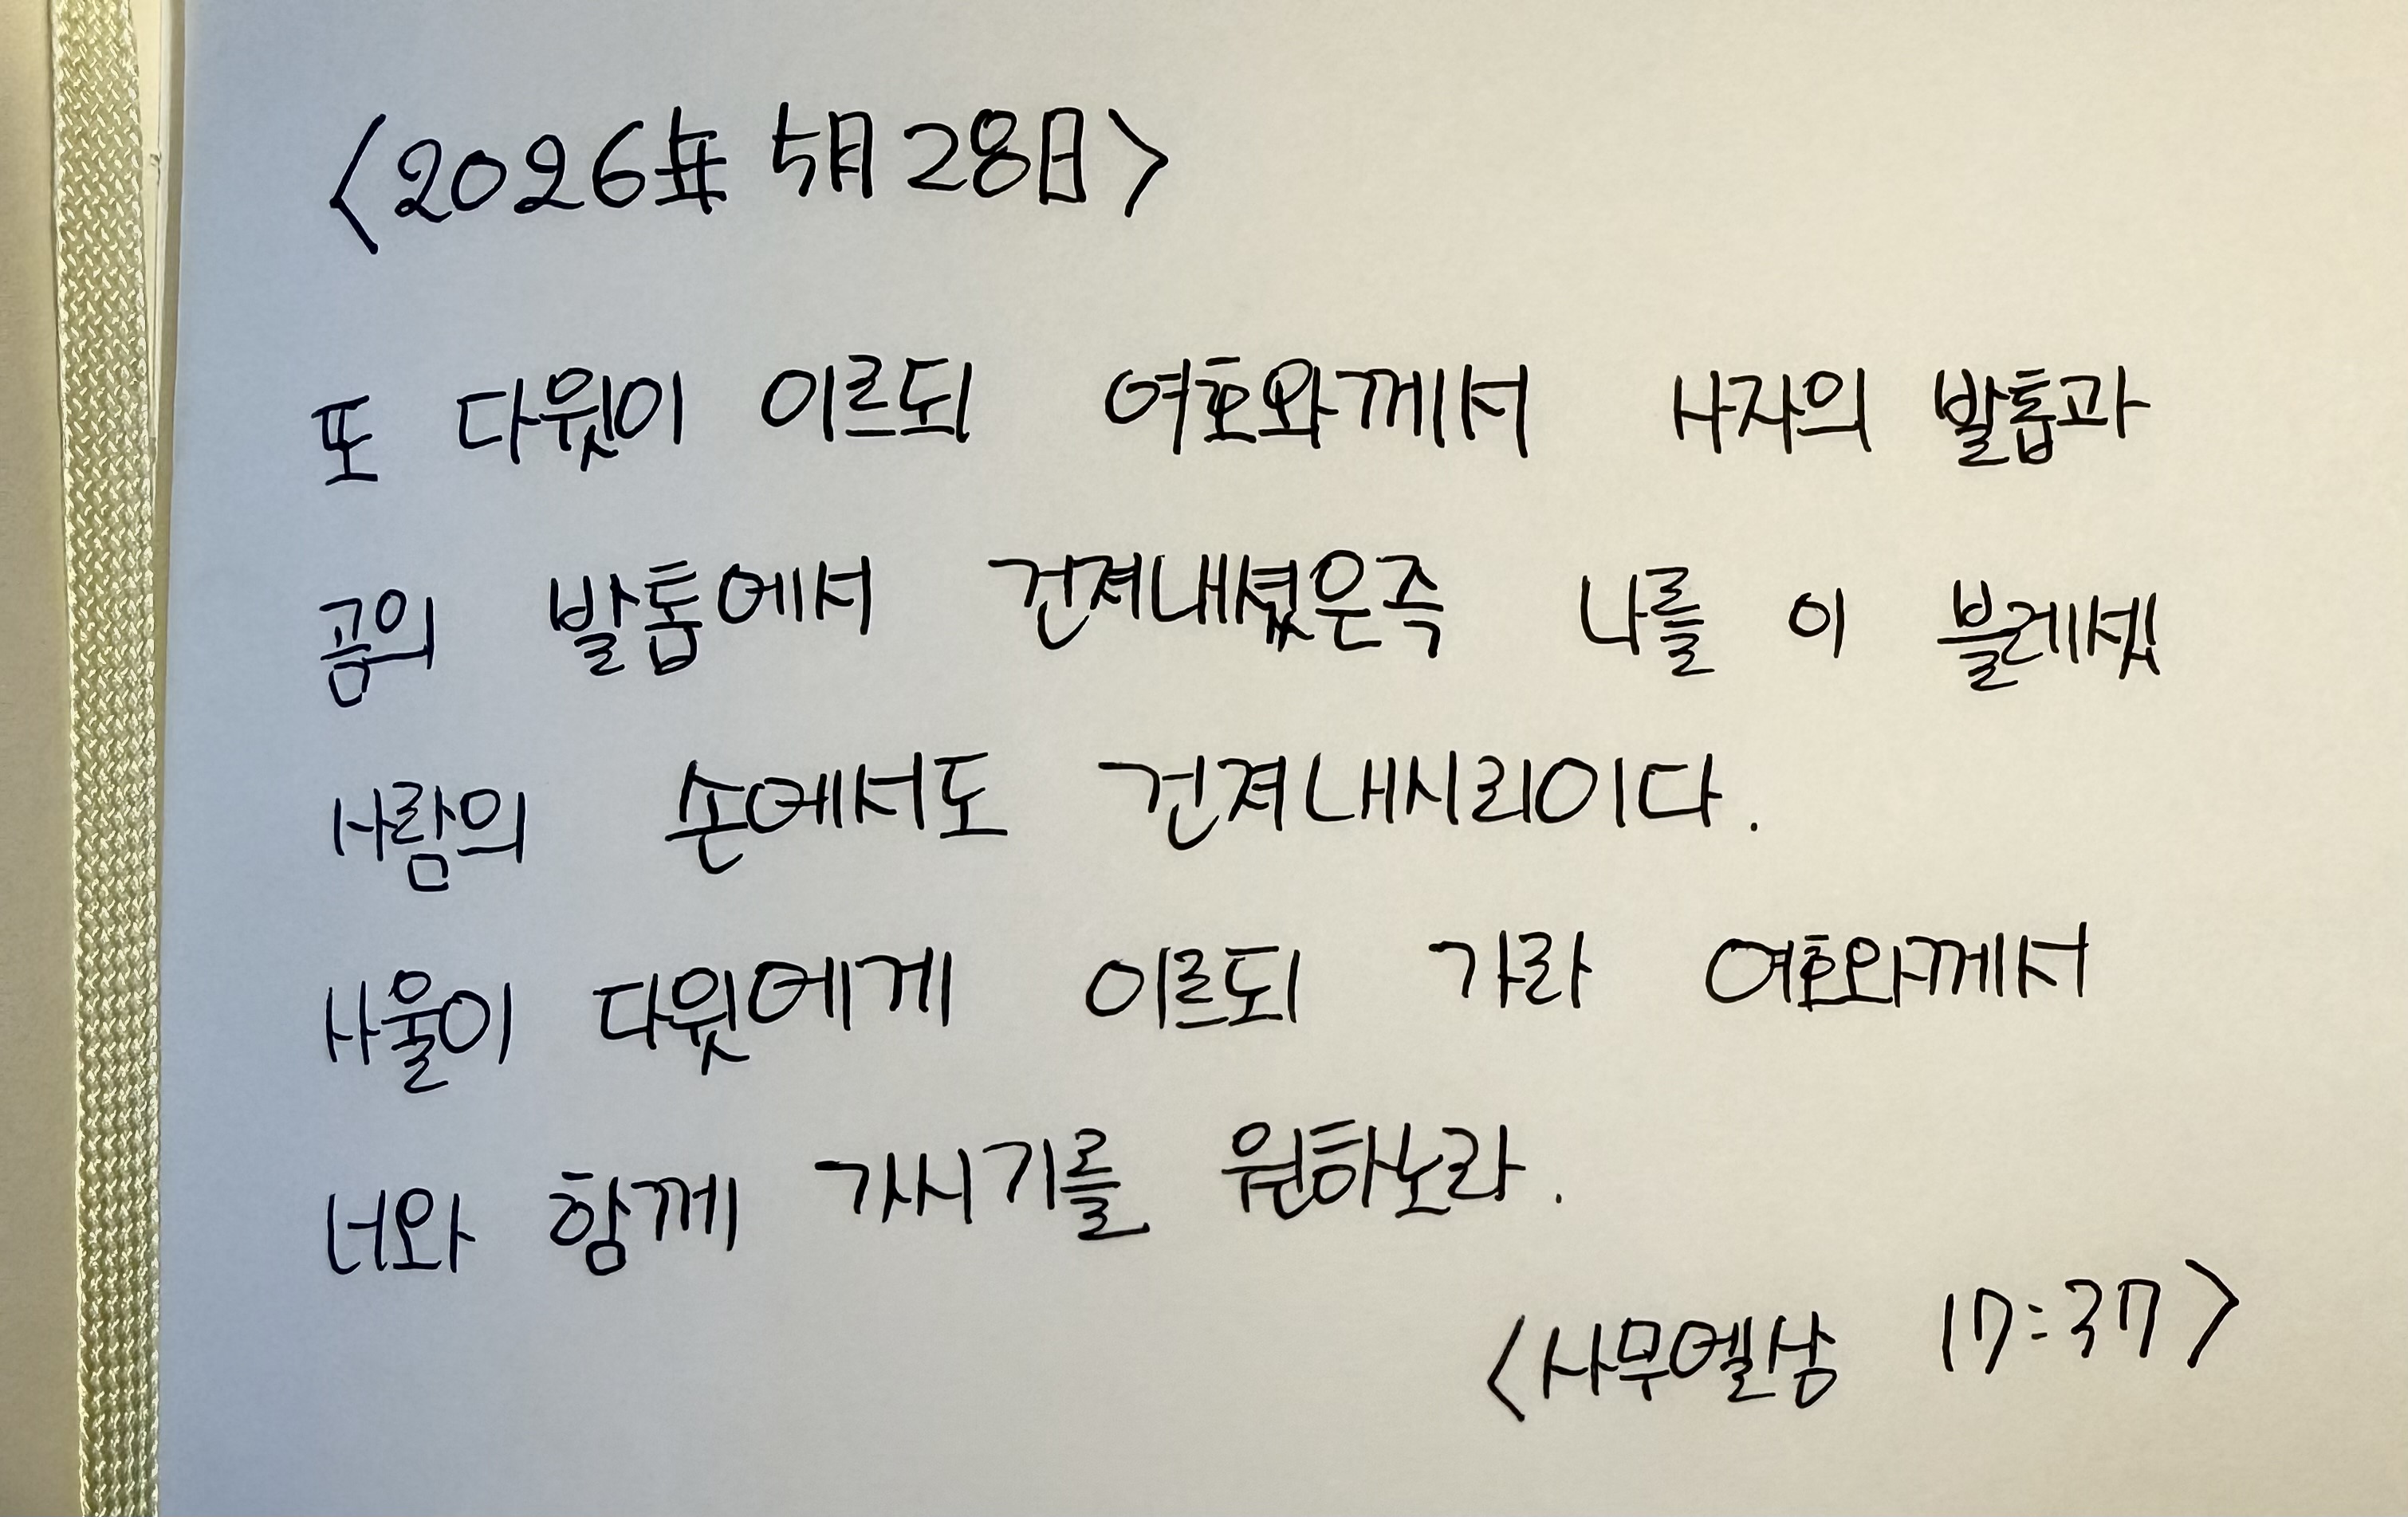 <2026年 5月 28日>
또 다윗이 이르되 여호와께서 사자의 발톱과
곰의 발톱에서 건져내셨은즉 나를 이 블레셋
사람의 손에서도 건져내시리이다.
사울이 다윗에게 이르되 가라 여호와께서
너와 함께 가시기를 원하노라.
<사무엘상 17:37>